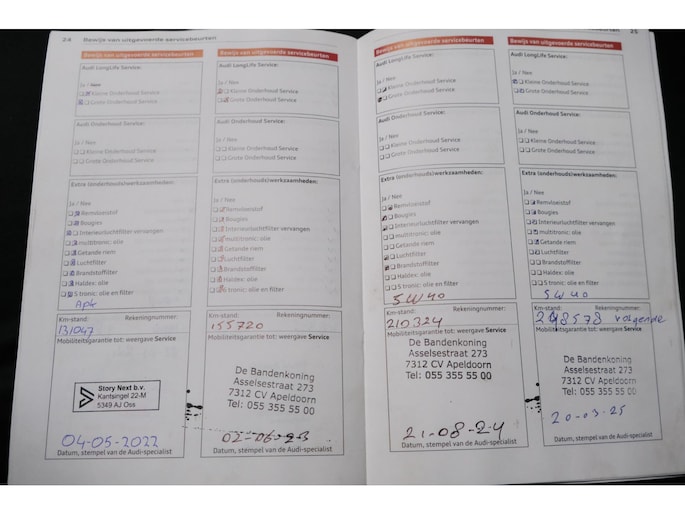 24 Bewijs van uitgevoerde servicebeurten
Bewijs van uitgevoerde servicebeurten
Audi LongLife Service:
Ja / Nee
Kleine Onderhoud Service
Grote Onderhoud Service
Audi Onderhoud Service:
Ja / Nee
Kleine Onderhoud Service
Grote Onderhoud Service
Extra (onderhouds)werkzaamheden:
Ja / Nee
Remvloeistof
Bougies
Interieurluchtfilter vervangen
multitronic: olie
Getande riem
Luchtfilter
Brandstoffilter
Haldex: olie
S tronic: olie en filter
APK
Km-stand: Rekeningnummer:
131047
Mobiliteitsgarantie tot: weergave Service
Story Next b.v.
Kantsingel 22-M
5349 AJ Oss
04-05-2022
Datum, stempel van de Audi-specialist
Bewijs van uitgevoerde servicebeurten
Audi LongLife Service:
Ja / Nee
Kleine Onderhoud Service
Grote Onderhoud Service
Audi Onderhoud Service:
Ja / Nee
Kleine Onderhoud Service
Grote Onderhoud Service
Extra (onderhouds)werkzaamheden:
Ja / Nee
Remvloeistof
Bougies
Interieurluchtfilter vervangen
multitronic: olie
Getande riem
Luchtfilter
Brandstoffilter
Haldex: olie
S tronic: olie en filter
Km-stand: Rekeningnummer:
155720
Mobiliteitsgarantie tot: weergave Service
De Bandenkoning
Asselsestraat 273
7312 CV Apeldoorn
Tel: 055 355 55 00
02-06-23
Datum, stempel van de Audi-specialist
25
Bewijs van uitgevoerde servicebeurten
Audi LongLife Service:
Ja / Nee
Kleine Onderhoud Service
Grote Onderhoud Service
Audi Onderhoud Service:
Ja / Nee
Kleine Onderhoud Service
Grote Onderhoud Service
Extra (onderhouds)werkzaamheden:
Ja / Nee
Remvloeistof
Bougies
Interieurluchtfilter vervangen
multitronic: olie
Getande riem
Luchtfilter
Brandstoffilter
Haldex: olie
S tronic: olie en filter
5W40
Km-stand: Rekeningnummer:
210324
Mobiliteitsgarantie tot: weergave Service
De Bandenkoning
Asselsestraat 273
7312 CV Apeldoorn
Tel: 055 355 55 00
21-08-24
Datum, stempel van de Audi-specialist
Bewijs van uitgevoerde servicebeurten
Audi LongLife Service:
Ja / Nee
Kleine Onderhoud Service
Grote Onderhoud Service
Audi Onderhoud Service:
Ja / Nee
Kleine Onderhoud Service
Grote Onderhoud Service
Extra (onderhouds)werkzaamheden:
Ja / Nee
Remvloeistof
Bougies
Interieurluchtfilter vervangen
multitronic: olie
Getande riem
Luchtfilter
Brandstoffilter
Haldex: olie
S tronic: olie en filter
5W40
Km-stand: Rekeningnummer:
volgende
Mobiliteitsgarantie tot: weergave Service
De Bandenkoning
Asselsestraat 273
7312 CV Apeldoorn
Tel: 055 355 55 00
20-03-25
Datum, stempel van de Audi-specialist